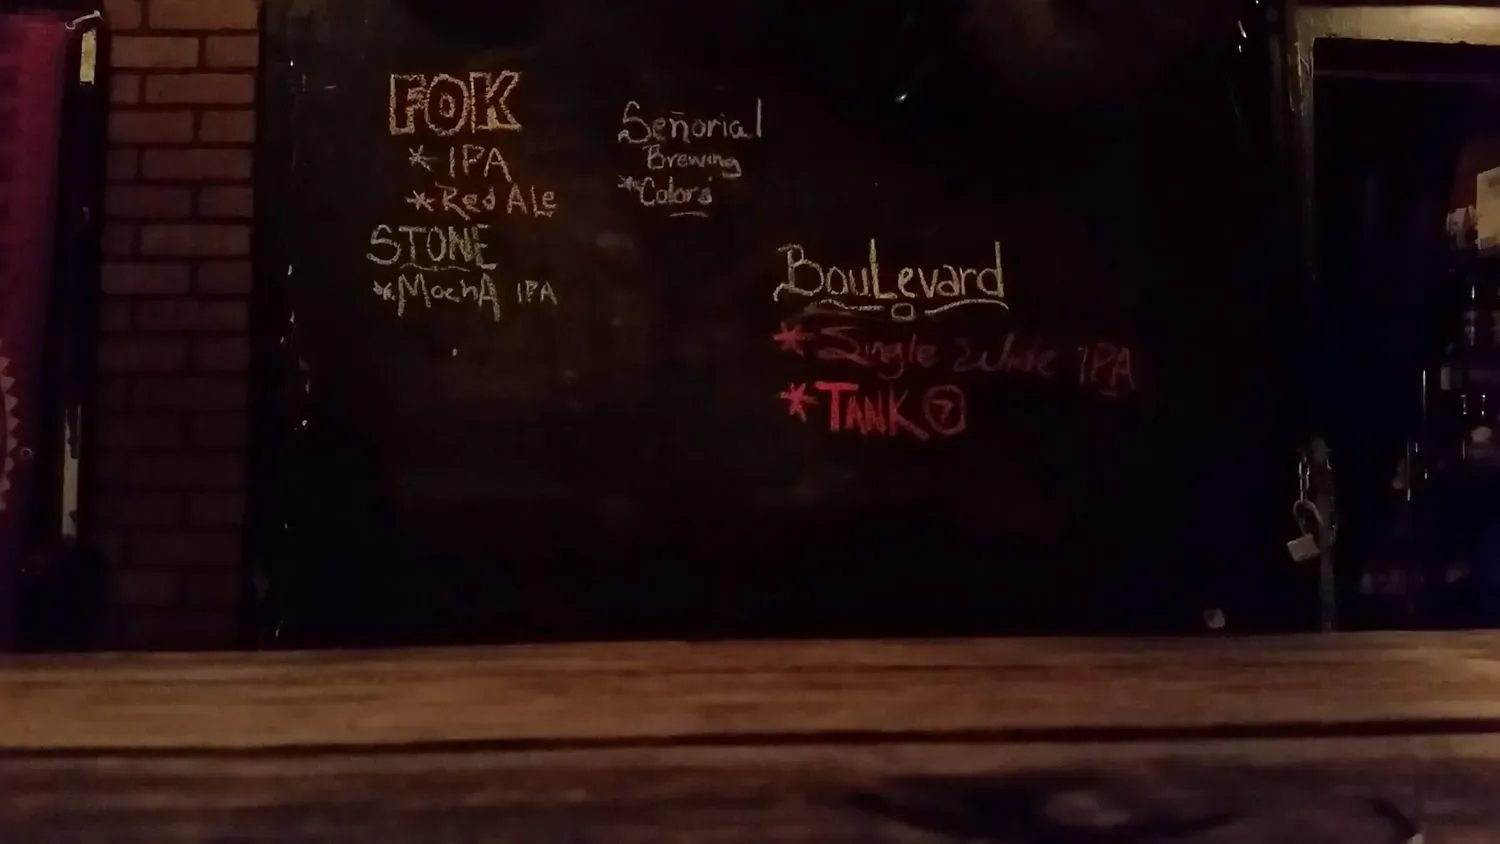 FOK
* IPA
* Red Ale
STONE
* MochA IPA
Señorial
Brewing
* Colors
BouLevard
* Single Wide IPA
* TANK 7